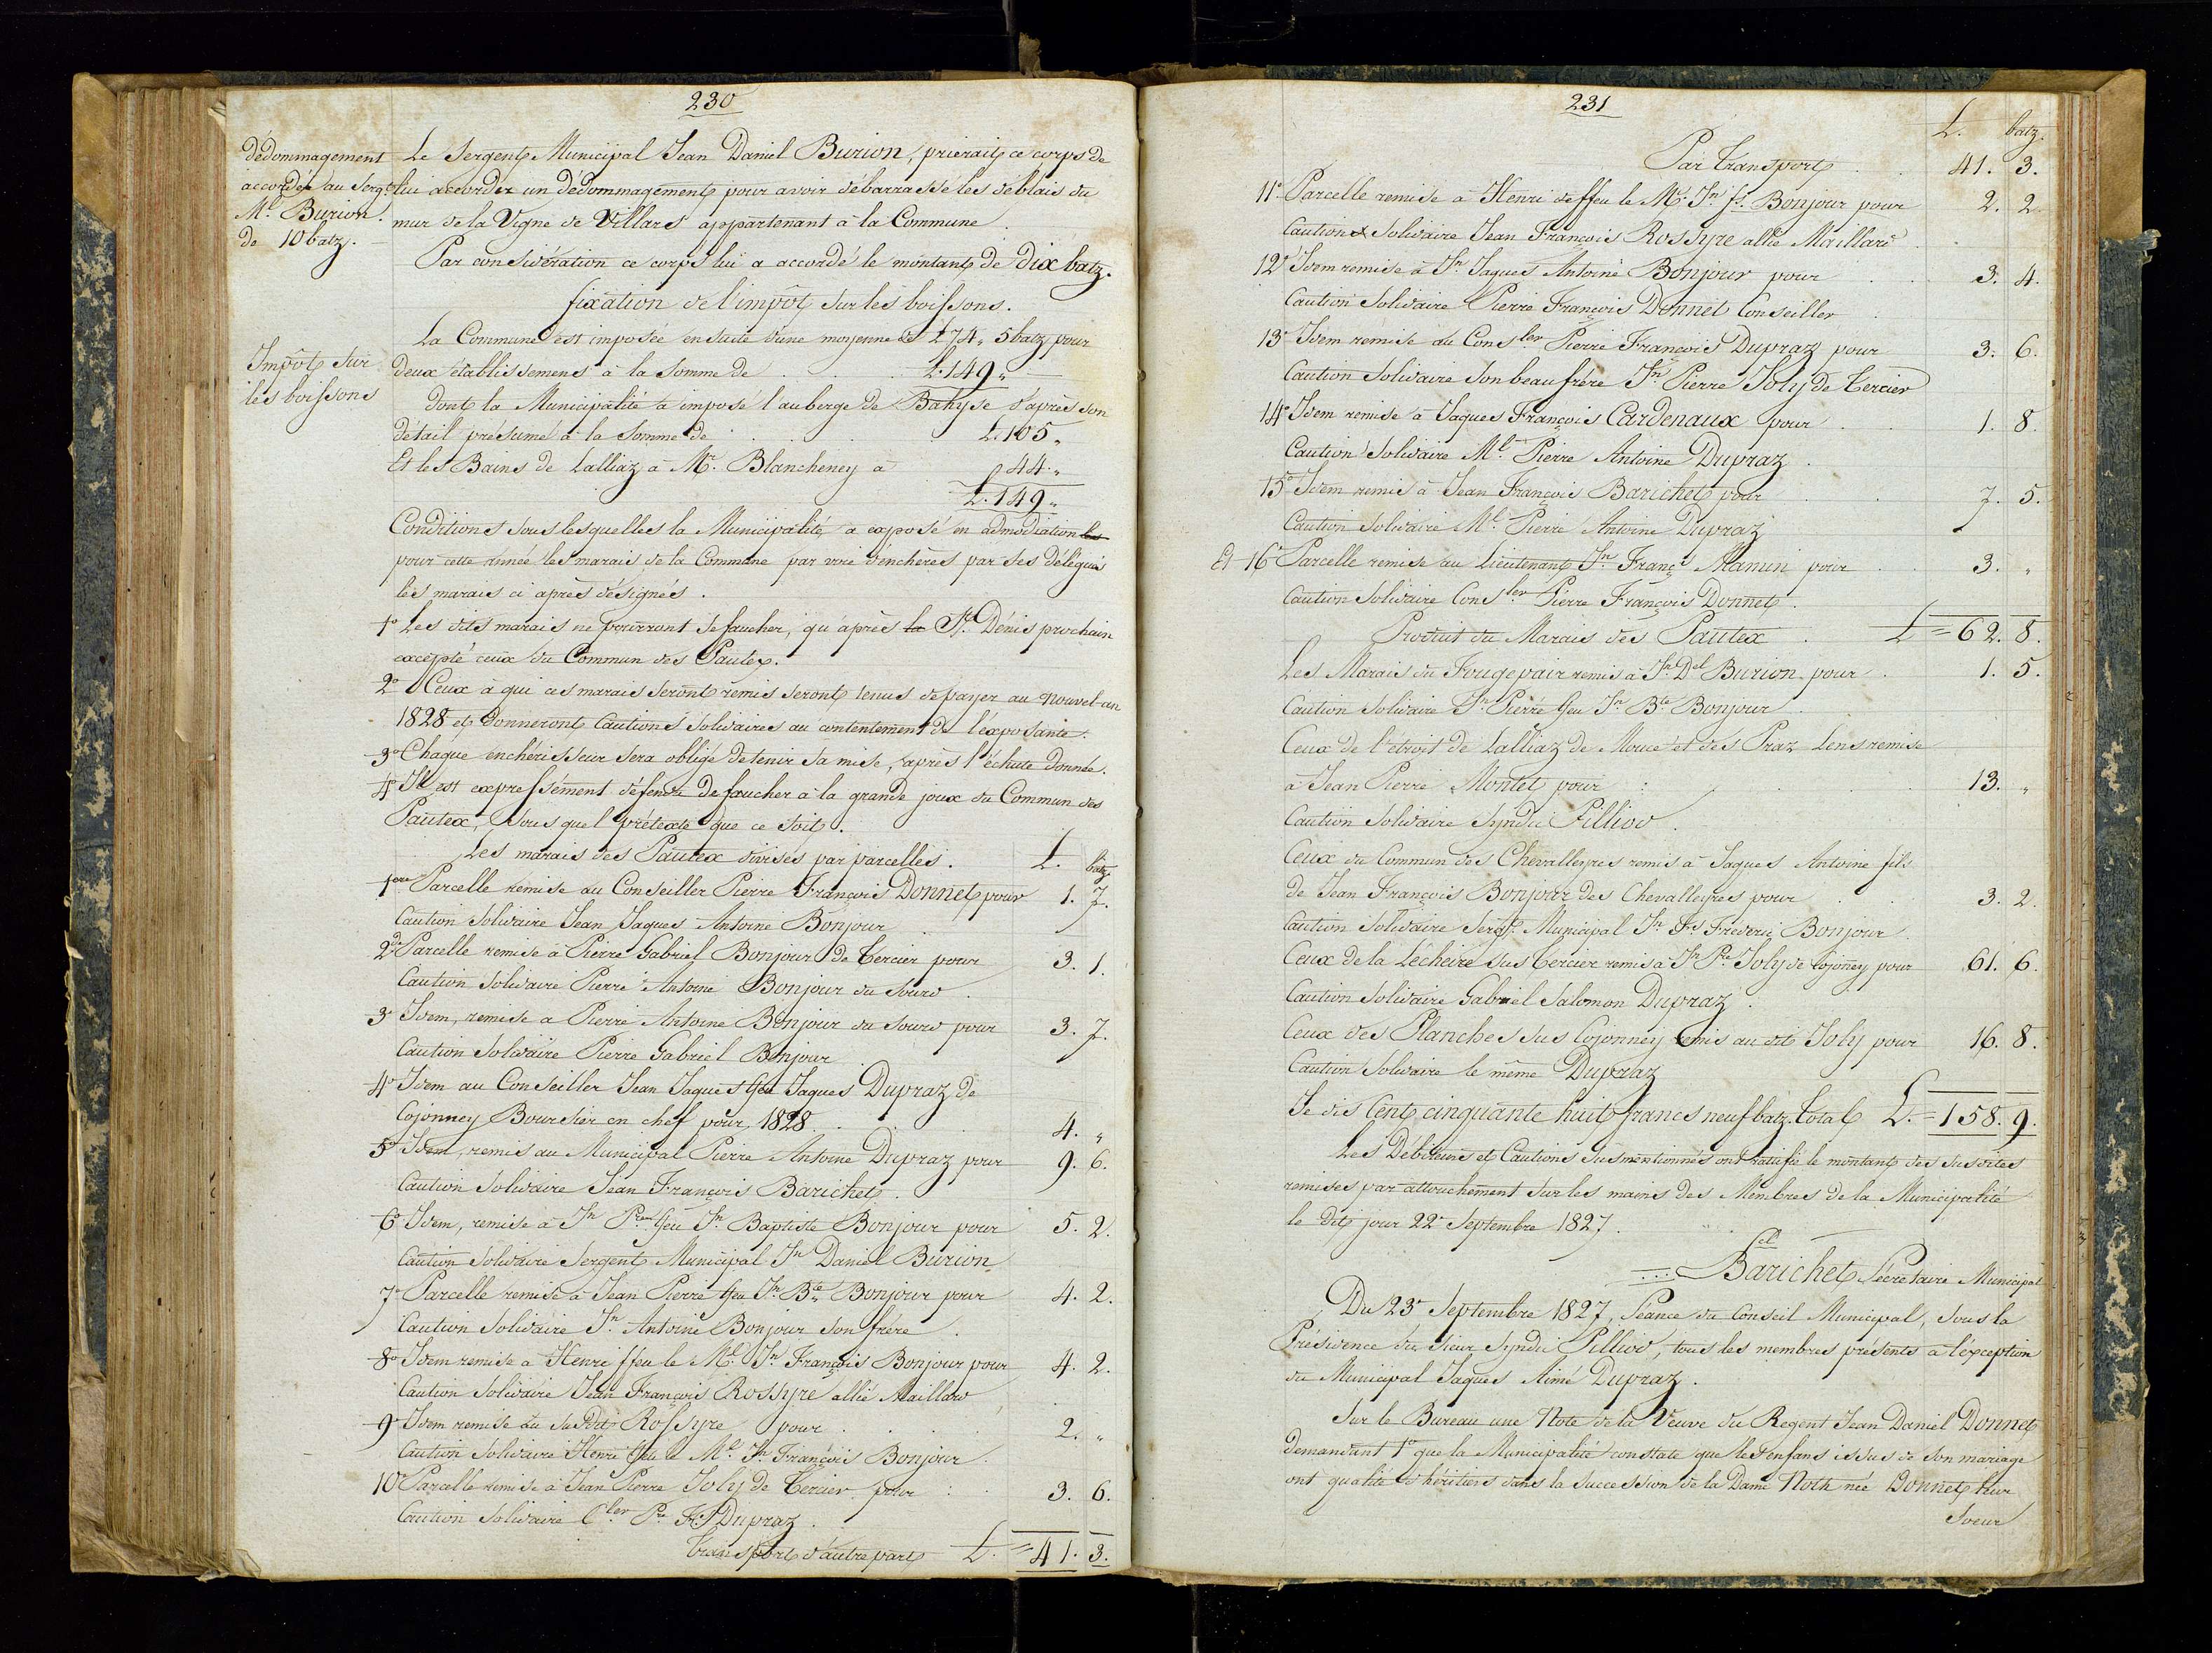 230
dédommagement
accordéé au Sergt
Ml. Burion.
de 10 batz.
Le Sergent Municipal Jean Daniel Burion, prierait ce corps de
lui accorder un dédommagement pour avoir débarrassé les déblais du
mur de la Vigne de Villard appartenant à la Commune.
Par considération ce corps lui a accordé le montant de dix batz.
fixation de l'impôt sur les boissons.
Impôt sur
les boissons
La Commune est imposée ensuite d'une moyenne de L 74 „ 5 batz pour
deux établissemens à la somme de . . . L. 149 „
dont la Municipalité a imposé l'auberge de Bahyse d'après son
détail présumé à la somme de . . . L. 105 „
Et les Bains de Lalliaz à Mr. Blancheney à 44 „
L. 149 „
Conditions sous lesquelles la Municipalité a exposé en admodiation les
pour cette année les marais de la Commune par voie d'enchères par ses délégués
les marais ci après désignés.
1° Les dits marais ne pourront se faucher, qu'après la St. Dénis prochain
excepté ceux du Commun des Pautex.
2° Ceux à qui ces marais seront remis seront tenus de payer au nouvel-an
1828 et donneront Cautions solidaires au contentement de l'exposante.
3° Chaque enchérisseur sera obligé de tenir sa mise, après l'échute donnée.
4° Il est expressément défendu de faucher à la grande joux du Commun des
Pautex, sous quel prétexte que ce soit.
Les marais des Pautex divisés par parcelles. L. batz
1ere Parcelle remise au Conseiller Pierre François Donnet pour 1. 7.
Caution solidaire Jean Jaques Antoine Bonjour
2de Parcelle remise à Pierre Gabriel Bonjour de Tercier pour 3. 1.
Caution solidaire Pierre Antoine Bonjour du Sourd.
3e Idem, remise à Pierre Antoine Bonjour du Sourd pour 3. 7.
Caution solidaire Pierre Gabriel Bonjour
4° Idem au Conseiller Jean Jaques feu Jaques Dupraz de
Cojonney Boursier en chef pour 1828. . . 4. „
5° Idem, remis au Municipal Pierre Antoine Dupraz pour 9. 6.
Caution solidaire Jean François Barichet.
6° Idem, remise à Jn Pre feu Jn Baptiste Bonjour pour 5. 2.
Caution solidaire Sergent Municipal Jn Daniel Burion
7e Parcelle remise à Jean Pierre feu Jn Bte Bonjour pour 4. 2.
Caution solidaire Jn Antoine Bonjour son frère.
8° Idem remise à Henri ffeu le Ml. Jn François Bonjour pour 4. 2.
Caution solidaire Jean François Rossyre allié Maillard
9e Idem remise du susdit Rossyre pour . . . 2. „
Caution solidaire Henri feu le Ml Jn François Bonjour.
10e Parcelle remise à Jean Pierre Joly de Tercier pour . . 3. 6.
Caution solidaire Cler Pre Frs Dupraz.
Transport d'autre part L. = 41. 3.
231
L. batz.
Par transport . . 41. 3.
11e Parcelle remise à Henri deffeu le Ml. Jn fs. Bonjour pour 2. 2.
Caution solidaire Jean François Rossyre allié Maillard
12e Idem remise à Jn Jaques Antoine Bonjour pour . . 3. 4.
Caution solidaire Pierre François Donnet Conseiller.
13e Idem remise au Consler Pierre François Dupraz pour 3. 6.
Caution solidaire son beau frère Jn Pierre Joly de Tercier
14e Idem remise à Jaques François Cardenaux pour . . 1. 8.
Caution solidaire Ml. Pierre Antoine Dupraz.
15e Idem remis à Jean François Barichet pour . . 7. 5.
Caution solidaire Ml. Pierre Antoine Dupraz
Et 16e Parcelle remise au Lieutenant Jn Françs Mamin pour . 3. „
Caution solidaire Consler Pierre François Donnet.
Produit du Marais des Pautex . L = 62. 8.
Les Marais du Fougepair remis à Jn Del Burion pour . 1. 5.
Caution solidaire Jn Pierre feu Jn Bte Bonjour.
Ceux de l'étroit de Lalliaz de Moucé et des Praz Lens remise
à Jean Pierre Montet pour : . . . 13. „
Caution solidaire Syndic Pilliod.
Ceux du Commun des Chevalleyres remis à Jaques Antoine fils
de Jean François Bonjour des Chevalleyres pour . . 3. 2.
Caution solidaire Sergt. Municipal Jn Frs Fréderic Bonjour
Ceux de la Lécheire sus Tercier remis à Jn Pre Joly de Cojonney pour 61. 6.
Caution solidaire Gabriel Salomon Dupraz.
Ceux des Planches sus Cojonney remis au dit Joly pour 16. 8.
Caution solidaire le même Dupraz
Je dis Cent cinquante huit francs neuf batz. Total L. = 158. 9.
Les Débiteurs et Cautions susmentionnés ont ratifié le montant des susdites
remises par attouchement sur les mains des Membres de la Municipalité
le dit jour 22e Septembre 1827.
Barichet Secrétaire Municipal
Du 23e Septembre 1827, Séance du Conseil Municipal, sous la
Présidence du Sieur Syndic Pilliod, tous les membres présents à l'éxception
du Municipal Jaques Aimé Dupraz.
Sur le Bureau une Note de la Veuve du Regent Jean Daniel Donnet
demandant 1° que la Municipalité constate que les enfans issus de son mariage
ont qualité d'héritiers dans la succession de la Dame Noth née Donnet leur
Soeur